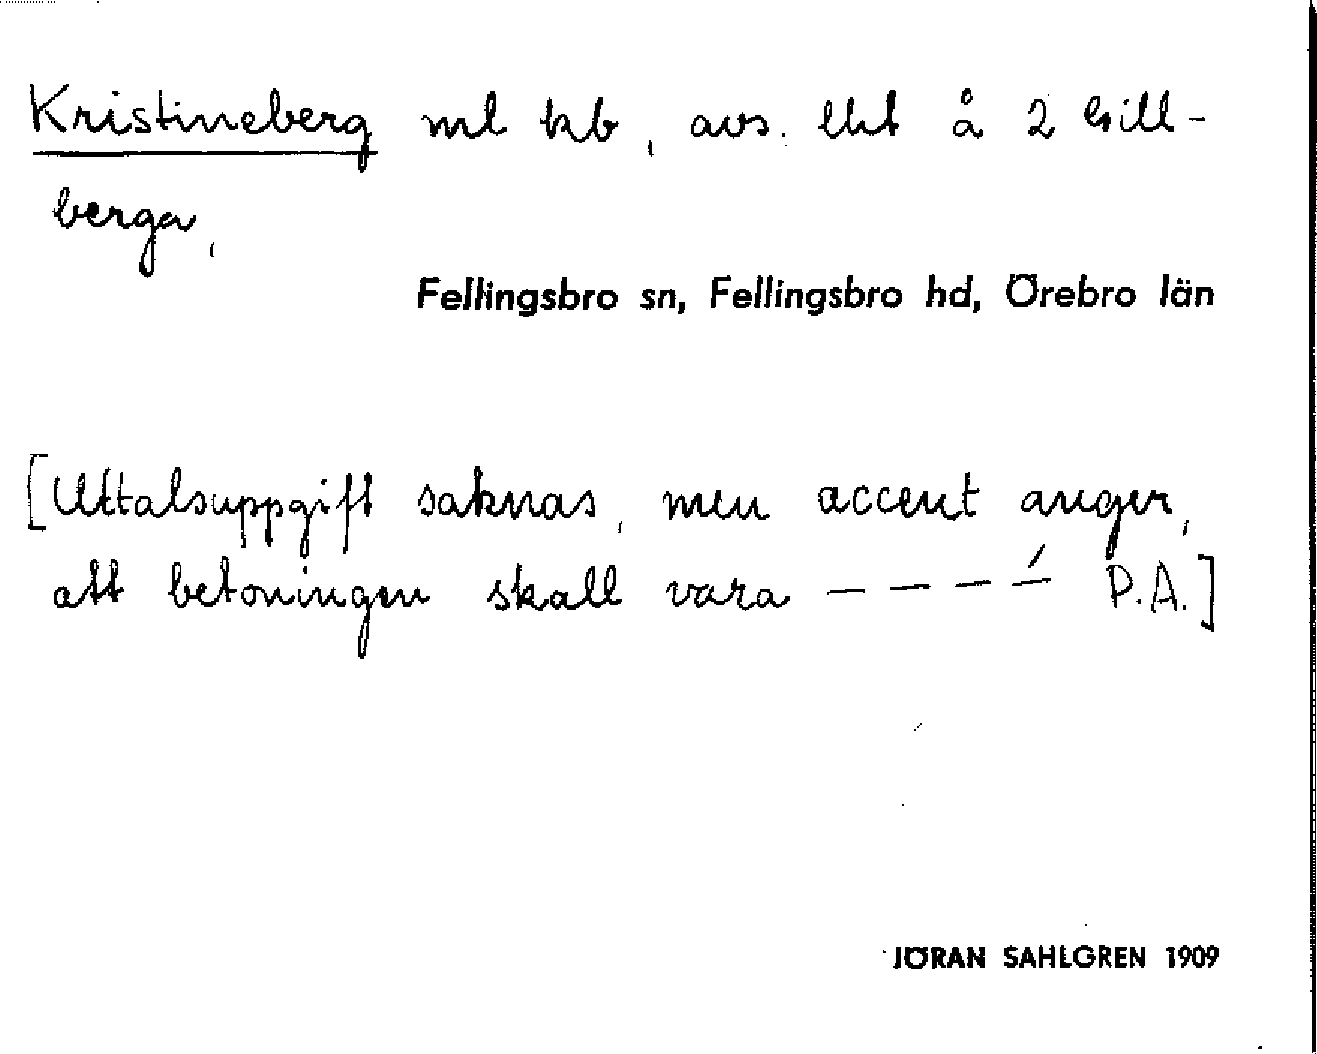 Kristineberg ml kb, avs. lht å 2 Gill-
berga,
Fellingsbro sn, Fellingsbro hd, Örebro län
[Uttalsuppgift saknas, men accent anger,
att betoningen skall vara – – – –́ P.A.]
JÖRAN SAHLGREN 1909